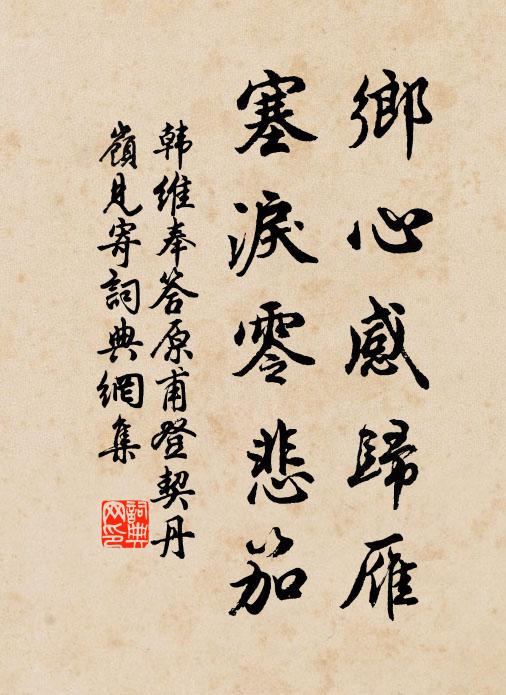 鄉心感歸雁
塞淚零悲笳
韩維奉答原甫登契丹
嶺見寄詞典網集
詞典
网印